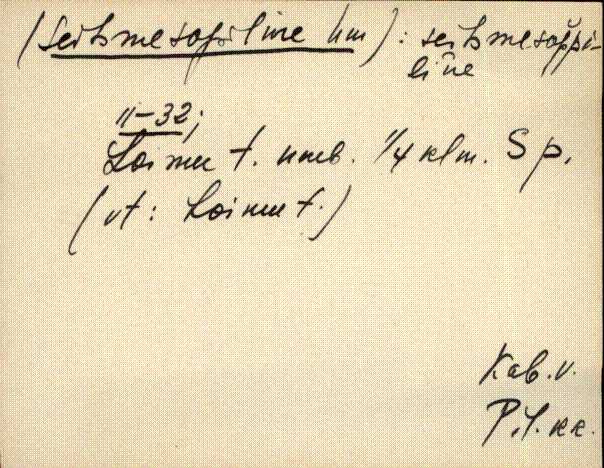 (Seitsmesopiline nm): seitsmesoppi-
line
11-32;
Loimu t. umb. 1/4 klm. Sp.
(vt: Loimu t.)
Kab. v.
P.-J. kk.